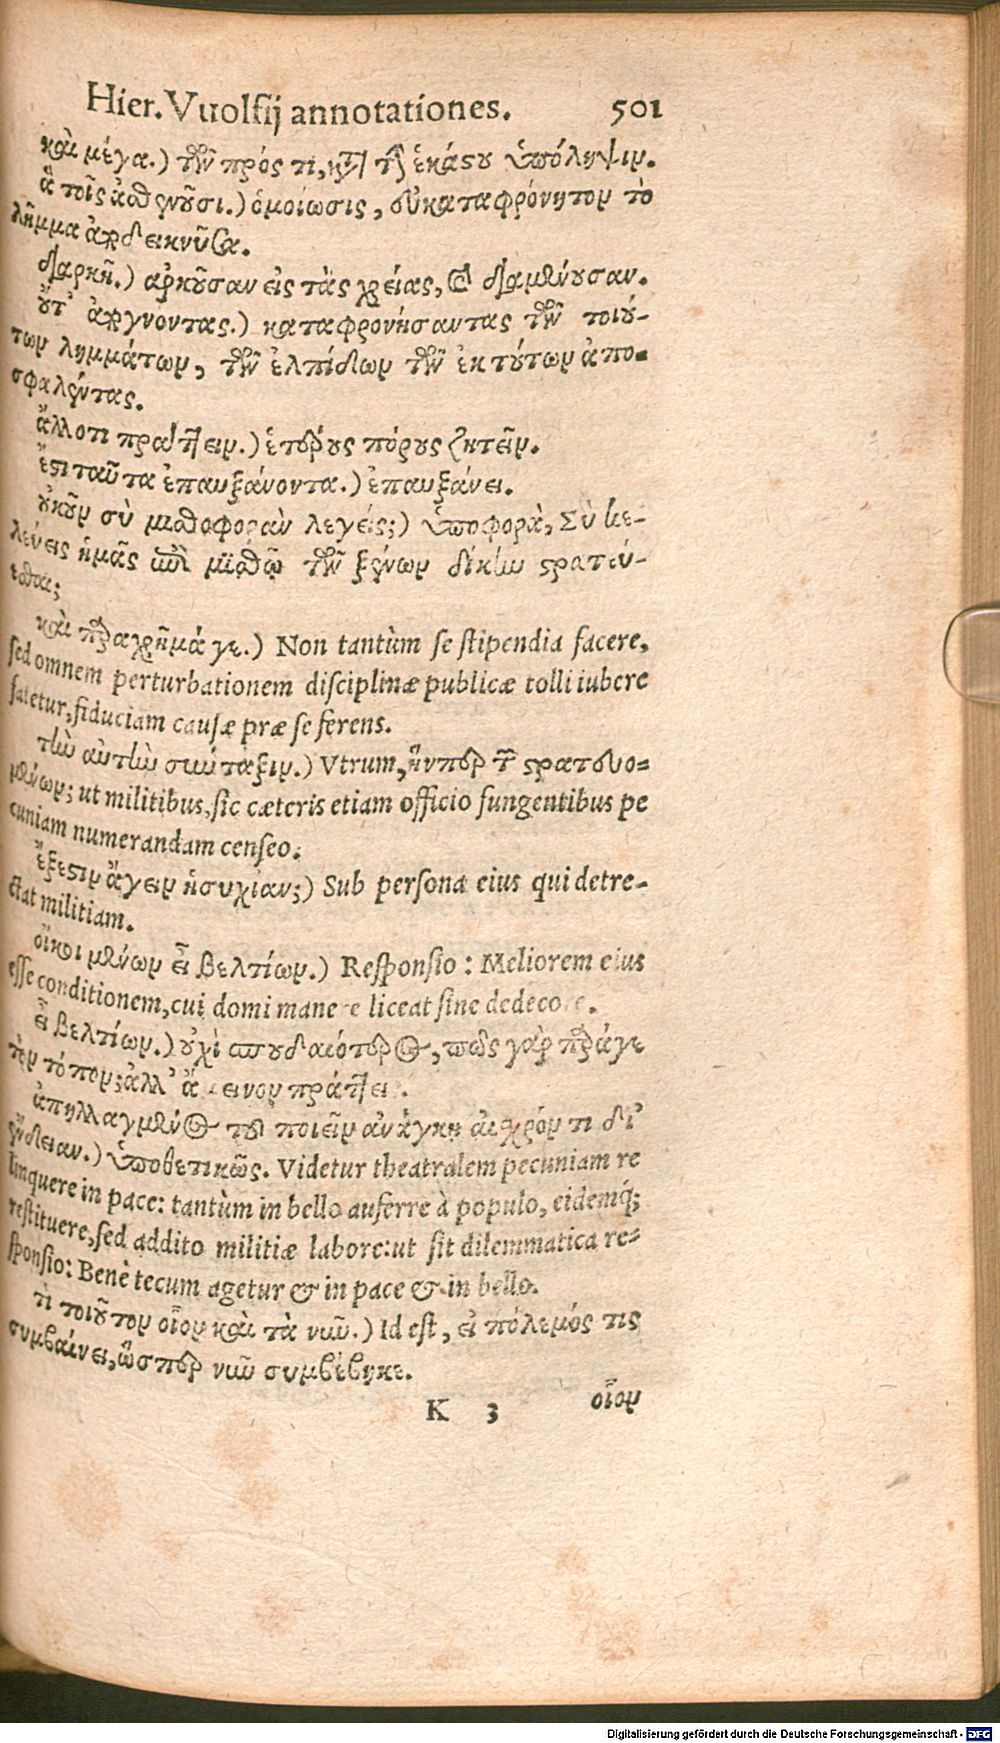 Hier. Vuolfij annotationes. 501
καὶ μέγα.) τῶν πρός τι, κατὰ τὴν ἑκάστου ὑπόληψιν.
ἃ τοῖς ἀσθενοῦσι.) ὁμοίωσις, εὐκαταφρόνητον τὸ
λῆμμα ἀποδεικνῦσα.
διαρκῆ.) ἀρκοῦσαν εἰς τὰς χρείας, καὶ διαμένουσαν.
οὔτ' ἀπογνόντας.) καταφρονήσαντας τῶν τοιού-
των λημμάτων, τῶν ἐλπίδων τῶν ἐκ τούτων ἀπο-
σφαλέντας.
ἄλλο τι πράττειν.) ἑτέρους πόρους ζητεῖν.
ἔστι ταῦτα ἐπαυξάνοντα.) ἐπαυξάνει.
οὐκοῦν σὺ μισθοφορὰν λέγεις;) ὑποφορὰ, Σὺ κε-
λεύεις ἡμᾶς ἐπὶ μισθῷ τῶν ξένων δίκην στρατεύ-
εσθαι;
καὶ παραχρῆμά γε.) Non tantùm se stipendia facere,
sed omnem perturbationem disciplinæ publicæ tolli iubere
fatetur, fiduciam causæ præ se ferens.
τὴν αὐτὴν σύνταξιν.) Vtrum, ἥνπερ τῶν στρατευο-
μένων; ut militibus, sic cæteris etiam officio fungentibus pe
cuniam numerandam censeo.
ἔξεστιν ἄγειν ἡσυχίαν;) Sub persona eius qui detre-
ctat militiam.
οἴκοι μένων εἶ βελτίων.) Responsio: Meliorem eius
esse conditionem, cui domi manere liceat sine dedecore.
εἶ βελτίων.) οὐχὶ σπουδαιότερος, πῶς γὰρ παράγε
τὸν τόπον; ἀλλ' ἄμεινον πράττει.
ἀπηλλαγμένος τοῦ ποιεῖν ἀνάγκῃ αἰσχρόν τι δι'
ἔνδειαν.) ὑποθετικῶς. Videtur theatralem pecuniam re
linquere in pace: tantùm in bello auferre à populo, eidemq́;
restituere, sed addito militiæ labore: ut sit dilemmatica re-
sponsio: Benè tecum agetur & in pace & in bello.
τὶ τοιοῦτον οἷον καὶ τὰ νῦν.) Id est, εἰ πόλεμός τις
συμβαίνει, ὥσπερ νῦν συμβέβηκε.
K 3 οἷον
Digitalisierung gefördert durch die Deutsche Forschungsgemeinschaft - DFG